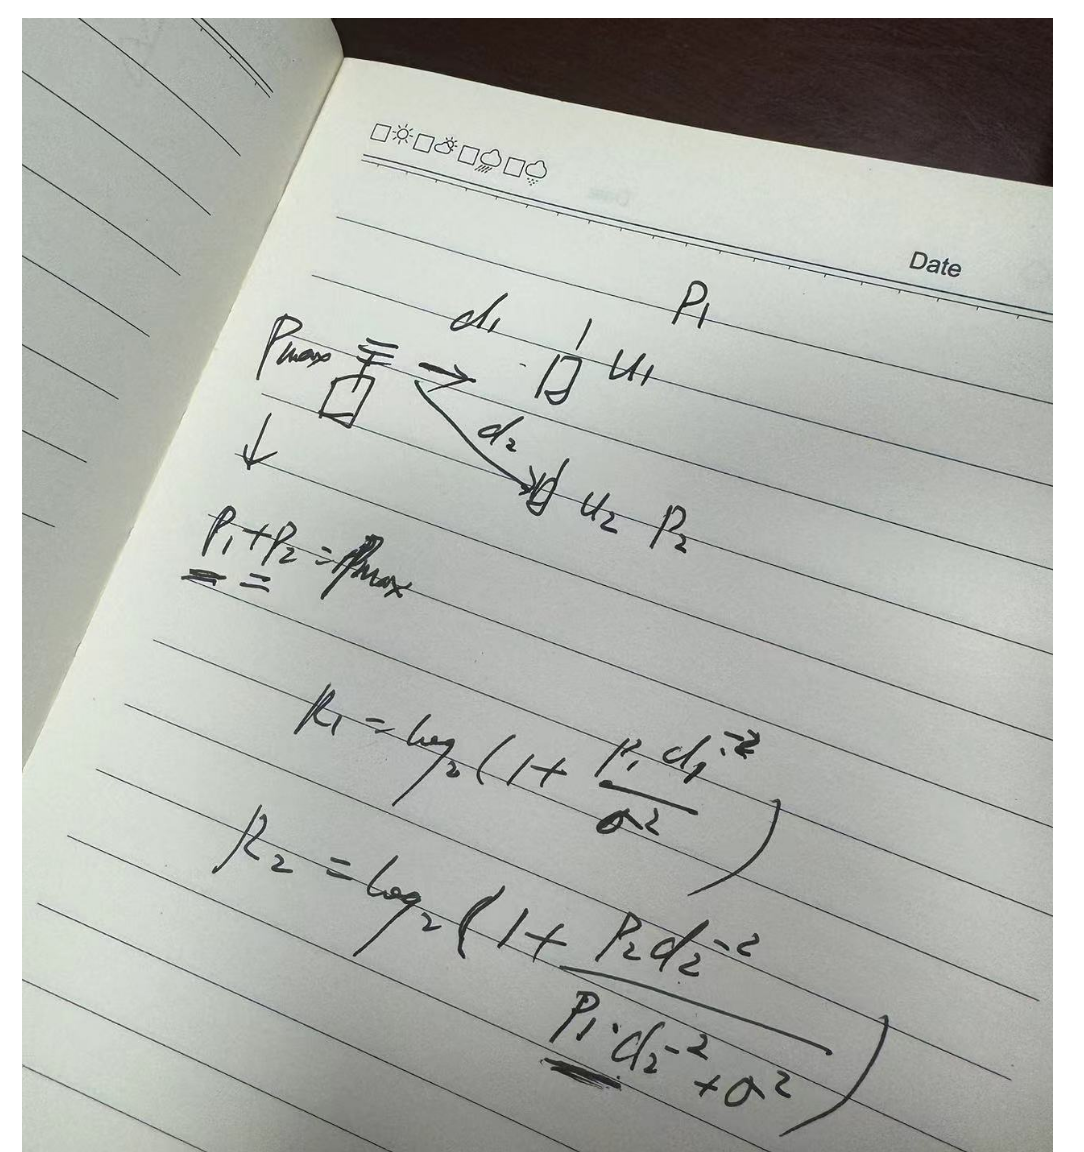 Date
P₁
d₁
Pmax
u₁
d₂
u₂ P₂
P₁+P₂=Pmax
R₁ = log₂(1+ P₁d₁⁻²/σ²)
R₂ = log₂(1+ P₂d₂⁻²/P₁·d₂⁻²+σ²)